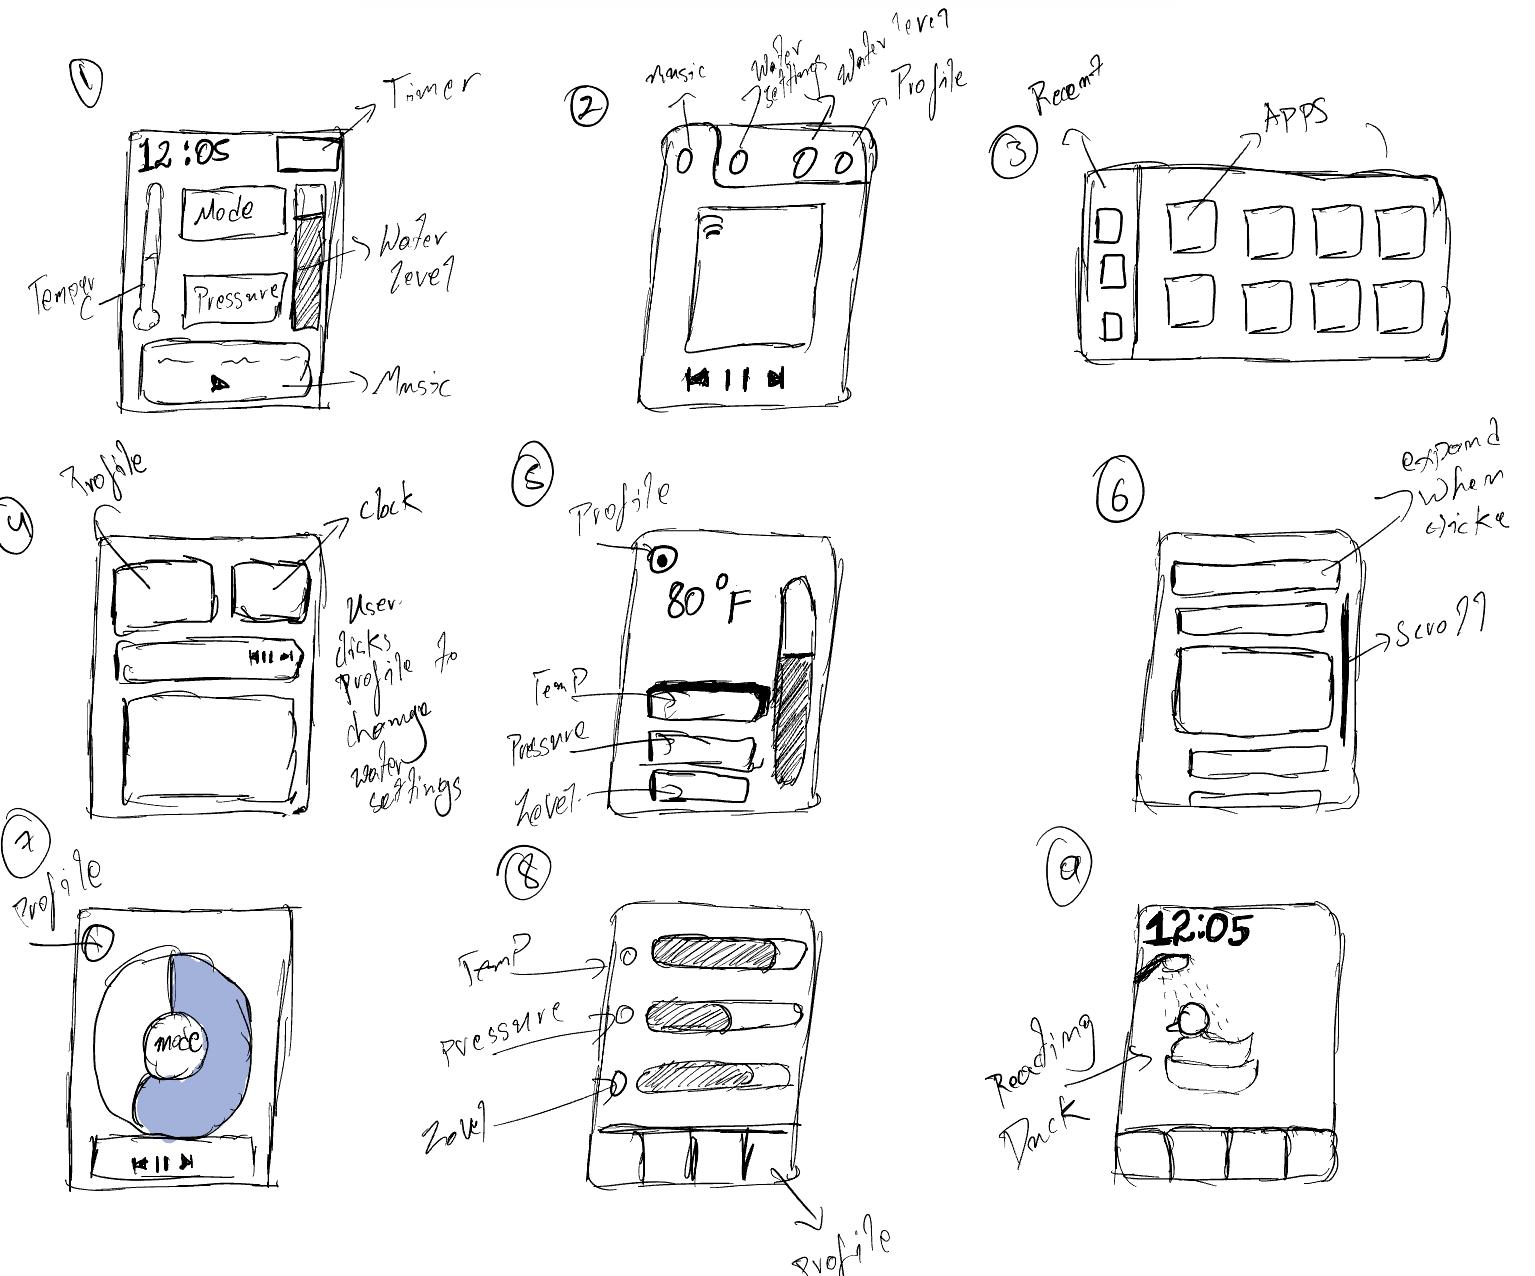 1
Timer
12:05
Mode
Water
Level
Pressure
Music
2
Music
Water
settings
Water level
Profile
3
Recent
APPS
4
Profile
clock
User
clicks
profile to
change
water
settings
5
Profile
80°F
Temp
Pressure
Level
6
expand
when
Scroll
7
Profile
mode
8
Temp
pressure
Level
Profile
9
12:05
Duck